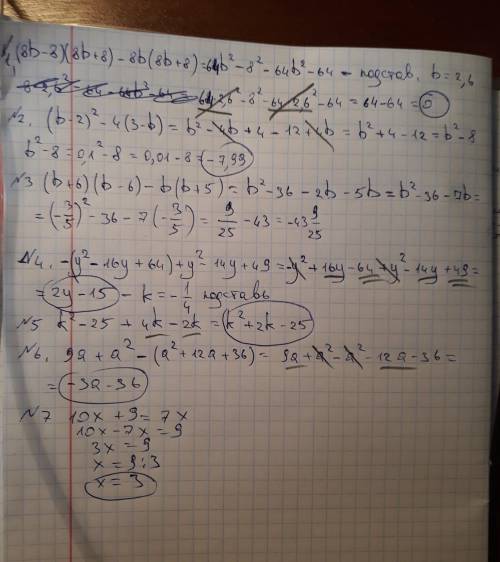 №1 (8b-8)(8b+8)-8b(8b+8)=64b²-8²-64b²-64 - подстав. b=2,6
64·2,6²-8²-64·2,6²-64=64-64=0
№2. (b-2)²-4(3-b)=b²-4b+4-12+4b=b²+4-12=b²-8
b²-8=0,1²-8=0,01-8=-7,99
№3 (b+6)(b-6)-b(b+5)=b²-36-2b-5b=b²-36-7b=
=(-3/5)²-36-7(-3/5)=9/25-43=-43 9/25
№4. -(y²-16y+64)+y²-14y+49=-y²+16y-64+y²-14y+49=
=2y-15 - k=-1/4 подставь
№5 k²-25+4k-2k=k²+2k-25
№6. 9a+a²-(a²+12a+36)=9a+a²-a²-12a-36=
=-3a-36
№7 10x+9=7x
10x-7x=9
3x=9
x=9:3
x=3